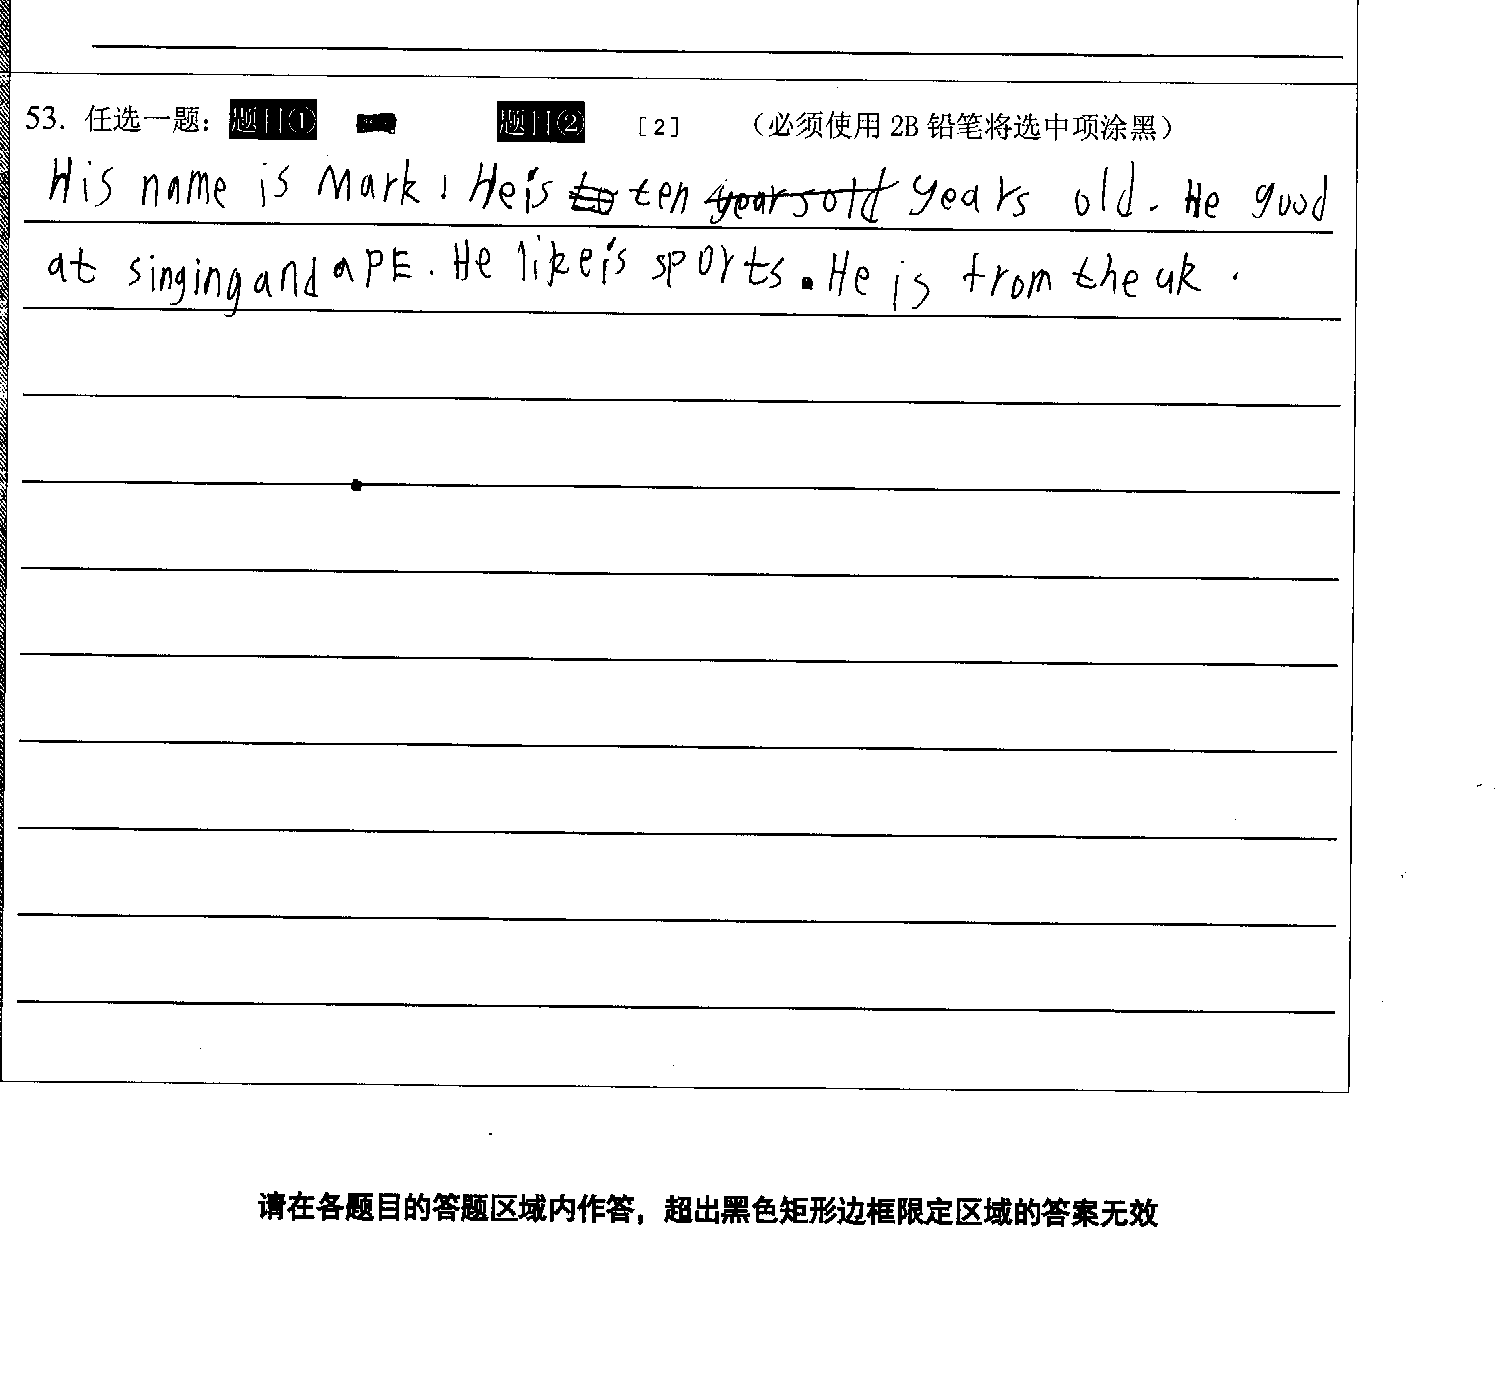 53. 任选一题：题目① 题目② [2] （必须使用 2B 铅笔将选中项涂黑）
His name is Mark. He is ten years old. He good
at singing and a PE. He like is sports. He is from the uk.
请在各题目的答题区域内作答，超出黑色矩形边框限定区域的答案无效